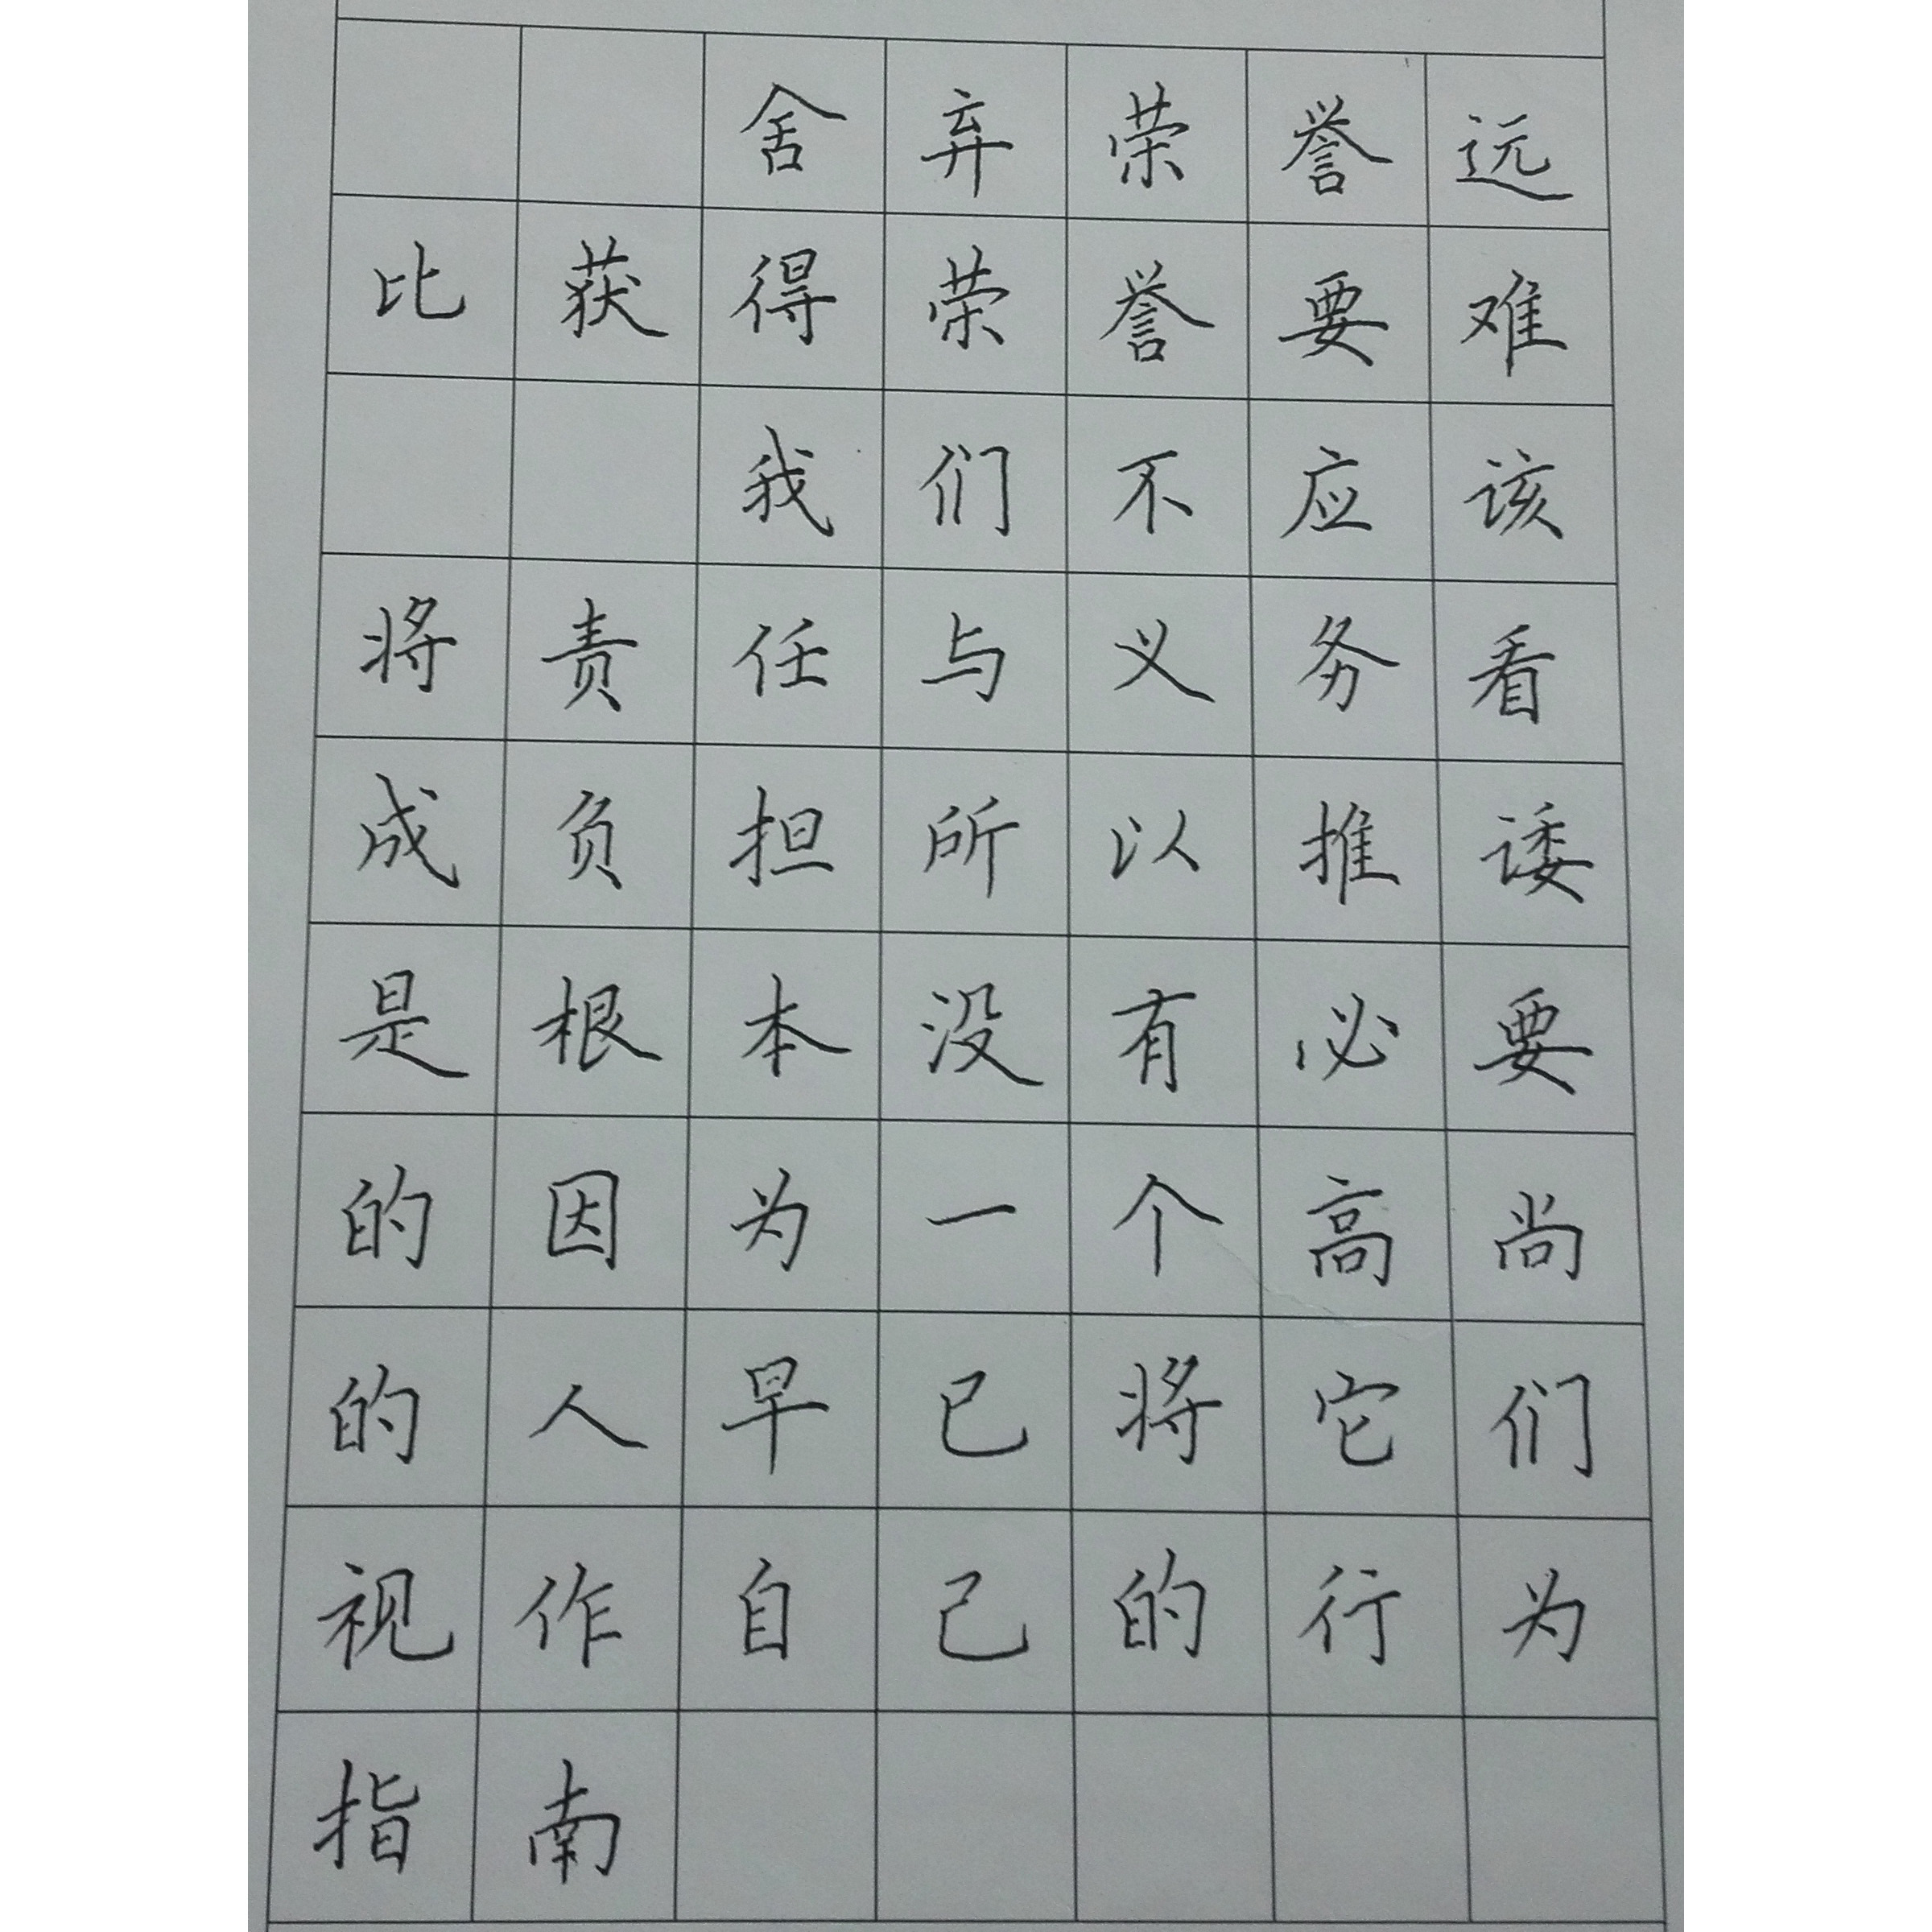 舍弃荣誉远
比获得荣誉要难
我们不应该
将责任与义务看
成负担所以推诿
是根本没有必要
的因为一个高尚
的人早已将它们
视作自己的行为
指南